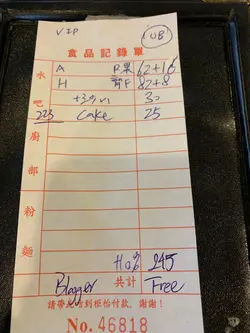 VIP
10B
食品記錄單
A B果 62+16
H 前F 82+8
30
223 Cake 25
水吧
廚部
粉麵
245
Blogger 共計 Free
請帶此單到柜枱付款。謝謝!
No. 46818